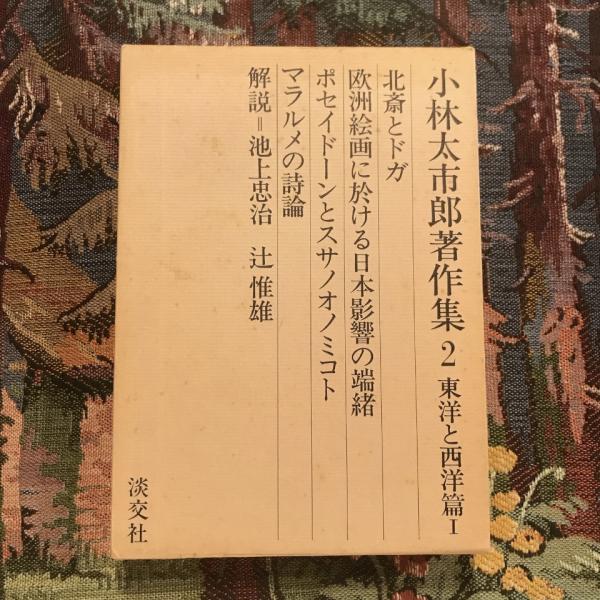 小林太市郎著作集 2 東洋と西洋篇Ⅰ
北斎とドガ
欧洲絵画に於ける日本影響の端緒
ポセイドーンとスサノオノミコト
マラルメの詩論
解説＝池上忠治 辻惟雄
淡交社